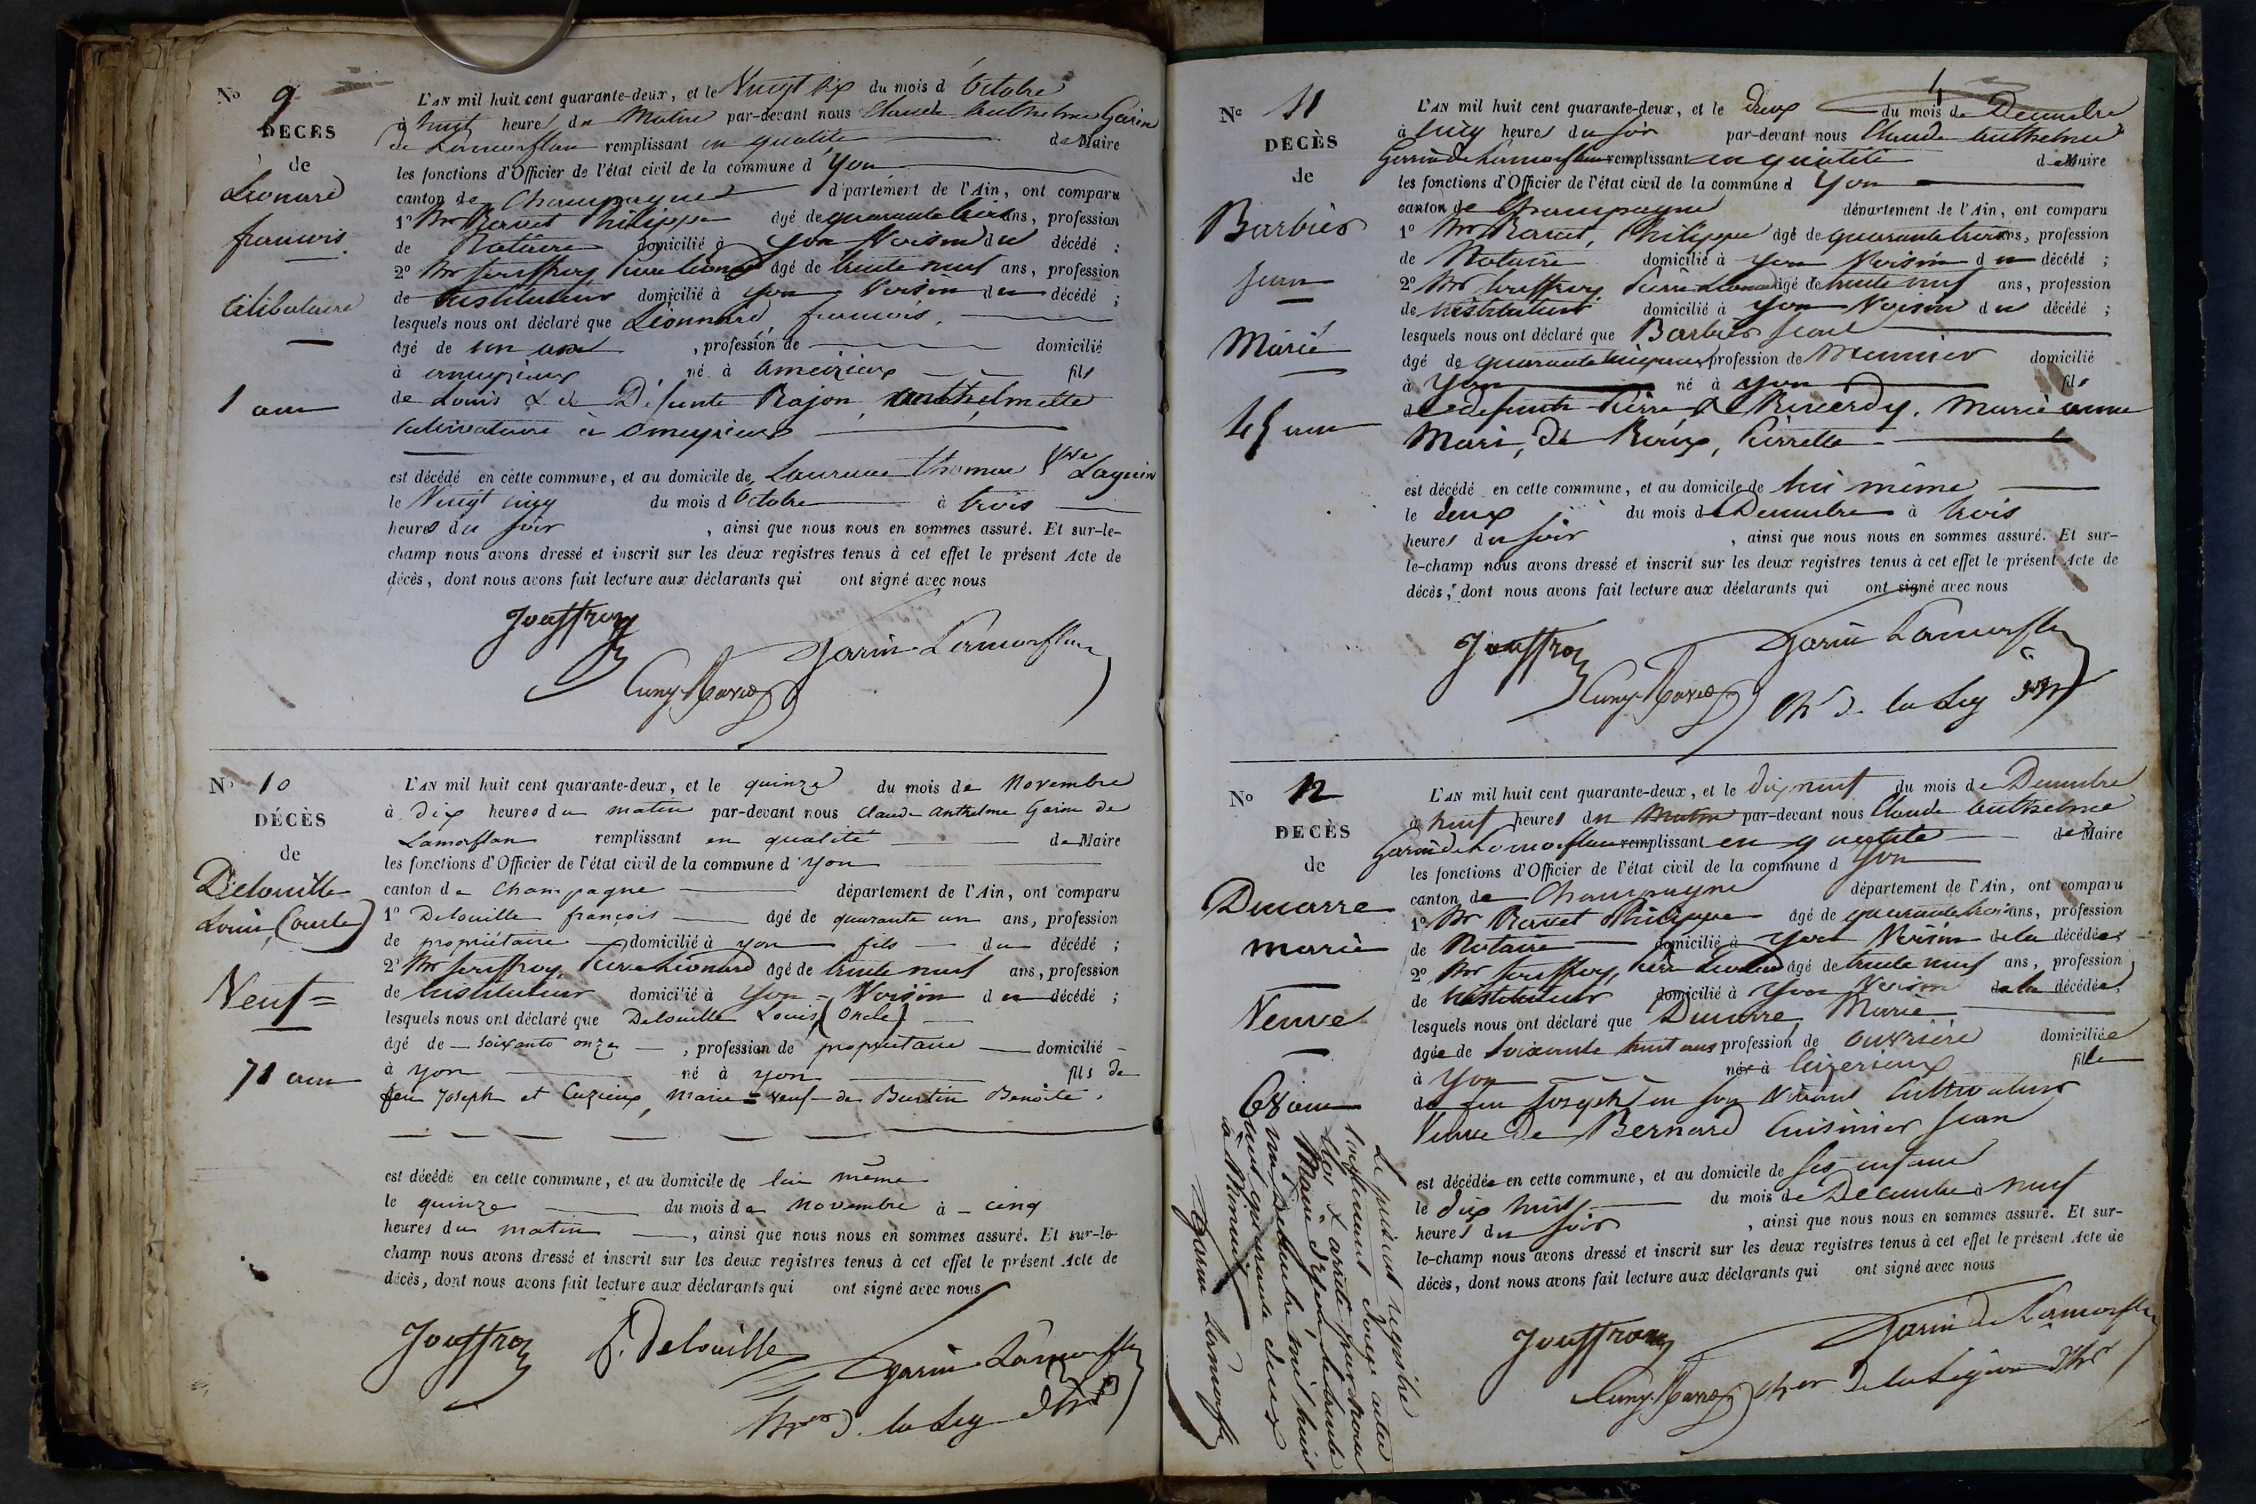 No 9
DÉCÈS
de
Léonard
françois
célibataire
1 an
L'AN mil huit cent quarante-deux, et le Vingt six du mois d'Octobre
à huit heures du Matin par-devant nous Claude Anthelme Garin
de Lamorflan remplissant en qualité de Maire
les fonctions d'Officier de l'état civil de la commune d'Yon
canton de Champagne département de l'Ain, ont comparu
1° Mr Ravet Philippe âgé de quarante trois ans, profession
de Notaire domicilié à Yon Voisin du décédé ;
2° Mr Jouffroy Pierre Léonard âgé de trente neuf ans, profession
de instituteur domicilié à Yon Voisin du décédé ;
lesquels nous ont déclaré que Léonnard, françois,
âgé de un an , profession de domicilié
à ameyzieux né à Ameizieux fils
de Louis & de Défunte Rajon, anthelmette
cultivateurs à ameyzieux
est décédé en cette commune, et au domicile de Laurence Thomas Vve Laguin
le Vingt cinq du mois d'Octobre à trois
heures du soir , ainsi que nous nous en sommes assuré. Et sur-le-
champ nous avons dressé et inscrit sur les deux registres tenus à cet effet le présent Acte de
décès, dont nous avons fait lecture aux déclarants qui ont signé avec nous
Jouffroy
Garin Lamorflan
Cuny Ravet
No 10
DÉCÈS
de
Delouille
Louis, (oncle)
Veuf =
71 ans
L'AN mil huit cent quarante-deux, et le quinze du mois de Novembre
à dix heures du matin par-devant nous Claude Anthelme Garin de
Lamorflan remplissant en qualité de Maire
les fonctions d'Officier de l'état civil de la commune d'yon
canton de champagne département de l'Ain, ont comparu
1° Delouille françois âgé de quarante un ans, profession
de propriétaire domicilié à yon fils du décédé ;
2° Mr Jouffroy, Pierre Léonard âgé de trente neuf ans, profession
de Instituteur domicilié à Yon = Voisin du décédé ;
lesquels nous ont déclaré que Delouille Louis (Oncle)
âgé de soixante onze , profession de propriétaire domicilié
à yon né à yon fils de
feu Joseph et Cuzieux, Marie = veuf de Burtin Benoite.
est décédé en cette commune, et au domicile de lui même
le quinze du mois de Novembre à cinq
heures du matin , ainsi que nous nous en sommes assuré. Et sur-le-
champ nous avons dressé et inscrit sur les deux registres tenus à cet effet le présent Acte de
décès, dont nous avons fait lecture aux déclarants qui ont signé avec nous
Jouffroy f. Delouille
Garin Lamorflan
de la Leg d'h
No 11
DÉCÈS
de
Barbier
Jean
Marié
45 ans
L'AN mil huit cent quarante-deux, et le deux du mois de Décembre
à cinq heures du soir par-devant nous Claude Anthelme
Garin de Lamorflan remplissant en qualité de Maire
les fonctions d'Officier de l'état civil de la commune d Yon
canton de Champagne département de l'Ain, ont comparu
1° Mr Ravet, Philippe âgé de quarante trois ans, profession
de Notaire domicilié à Yon Voisin du décédé ;
2° Mr Jouffroy Pierre Léonard âgé de trente neuf ans, profession
de instituteur domicilié à Yon Voisin du décédé ;
lesquels nous ont déclaré que Barbier Jean
âgé de quarante cinq ans, profession de Meunier domicilié
à Yon né à yon fils
de défunts Pierre & Marie anne
Mari, de Roux, Pierrette
est décédé en cette commune, et au domicile de lui même
le deux du mois de Décembre à trois
heures du soir , ainsi que nous nous en sommes assuré. Et sur-
le-champ nous avons dressé et inscrit sur les deux registres tenus à cet effet le présent Acte de
décès, dont nous avons fait lecture aux déclarants qui ont signé avec nous
Jouffroy
Garin Lamorflan
Cuny Ravet
de la Leg
No 12
DÉCÈS
de
Ducarre
marie
Veuve
68 ans
L'AN mil huit cent quarante-deux, et le dix neuf du mois de Décembre
à neuf heures du Matin par-devant nous Claude Anthelme
Garin de Lamorflan remplissant en qualité de Maire
les fonctions d'Officier de l'état civil de la commune d Yon
canton de Champagne département de l'Ain, ont comparu
1° Mr Ravet Philippe âgé de quarante trois ans, profession
de Notaire domicilié à Yon Voisin de la décédée
2° Mr Jouffroy, Pierre Léonard âgé de trente neuf ans, profession
de instituteur domicilié à Yon Voisin de la décédée
lesquels nous ont déclaré que Ducarre, Marie
âgée de soixante huit ans profession de ouvrière domiciliée
à Yon née à Ceyzerieux fille
de feu Joseph en son vivant Cultivateur
Veuve de Bernard Cuisinier Jean
est décédée en cette commune, et au domicile de ses enfans
le dix huit du mois de Décembre à neuf
heures du soir , ainsi que nous nous en sommes assuré. Et sur-
le-champ nous avons dressé et inscrit sur les deux registres tenus à cet effet le présent Acte de
décès, dont nous avons fait lecture aux déclarants qui ont signé avec nous
Jouffroy
Garin de Lamorflan
Cuny Ravet
de la Légion d'hr
Le présent registre
contenant douze actes
clos & arrêté par nous
Maire d'Yon le trente
un Décembre mil huit
cent quarante deux
à Minuit
Garin Lamorflan